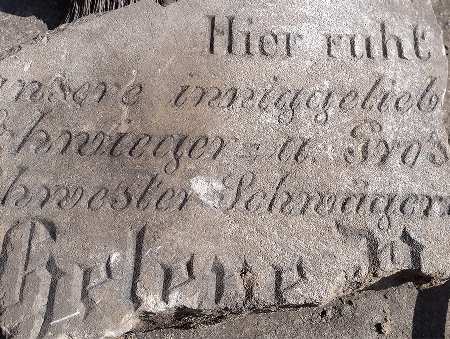 Hier ruht
unsere inniggelieb
chwieger= u. Gros
chwester Schwägeri
Helene